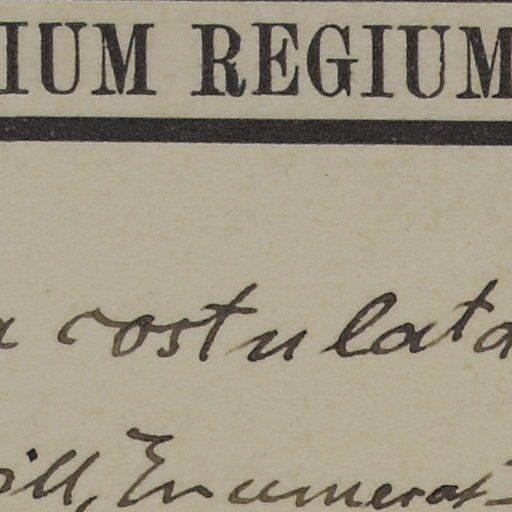 IUM REGIUM
a costulata
ill, Enumerat